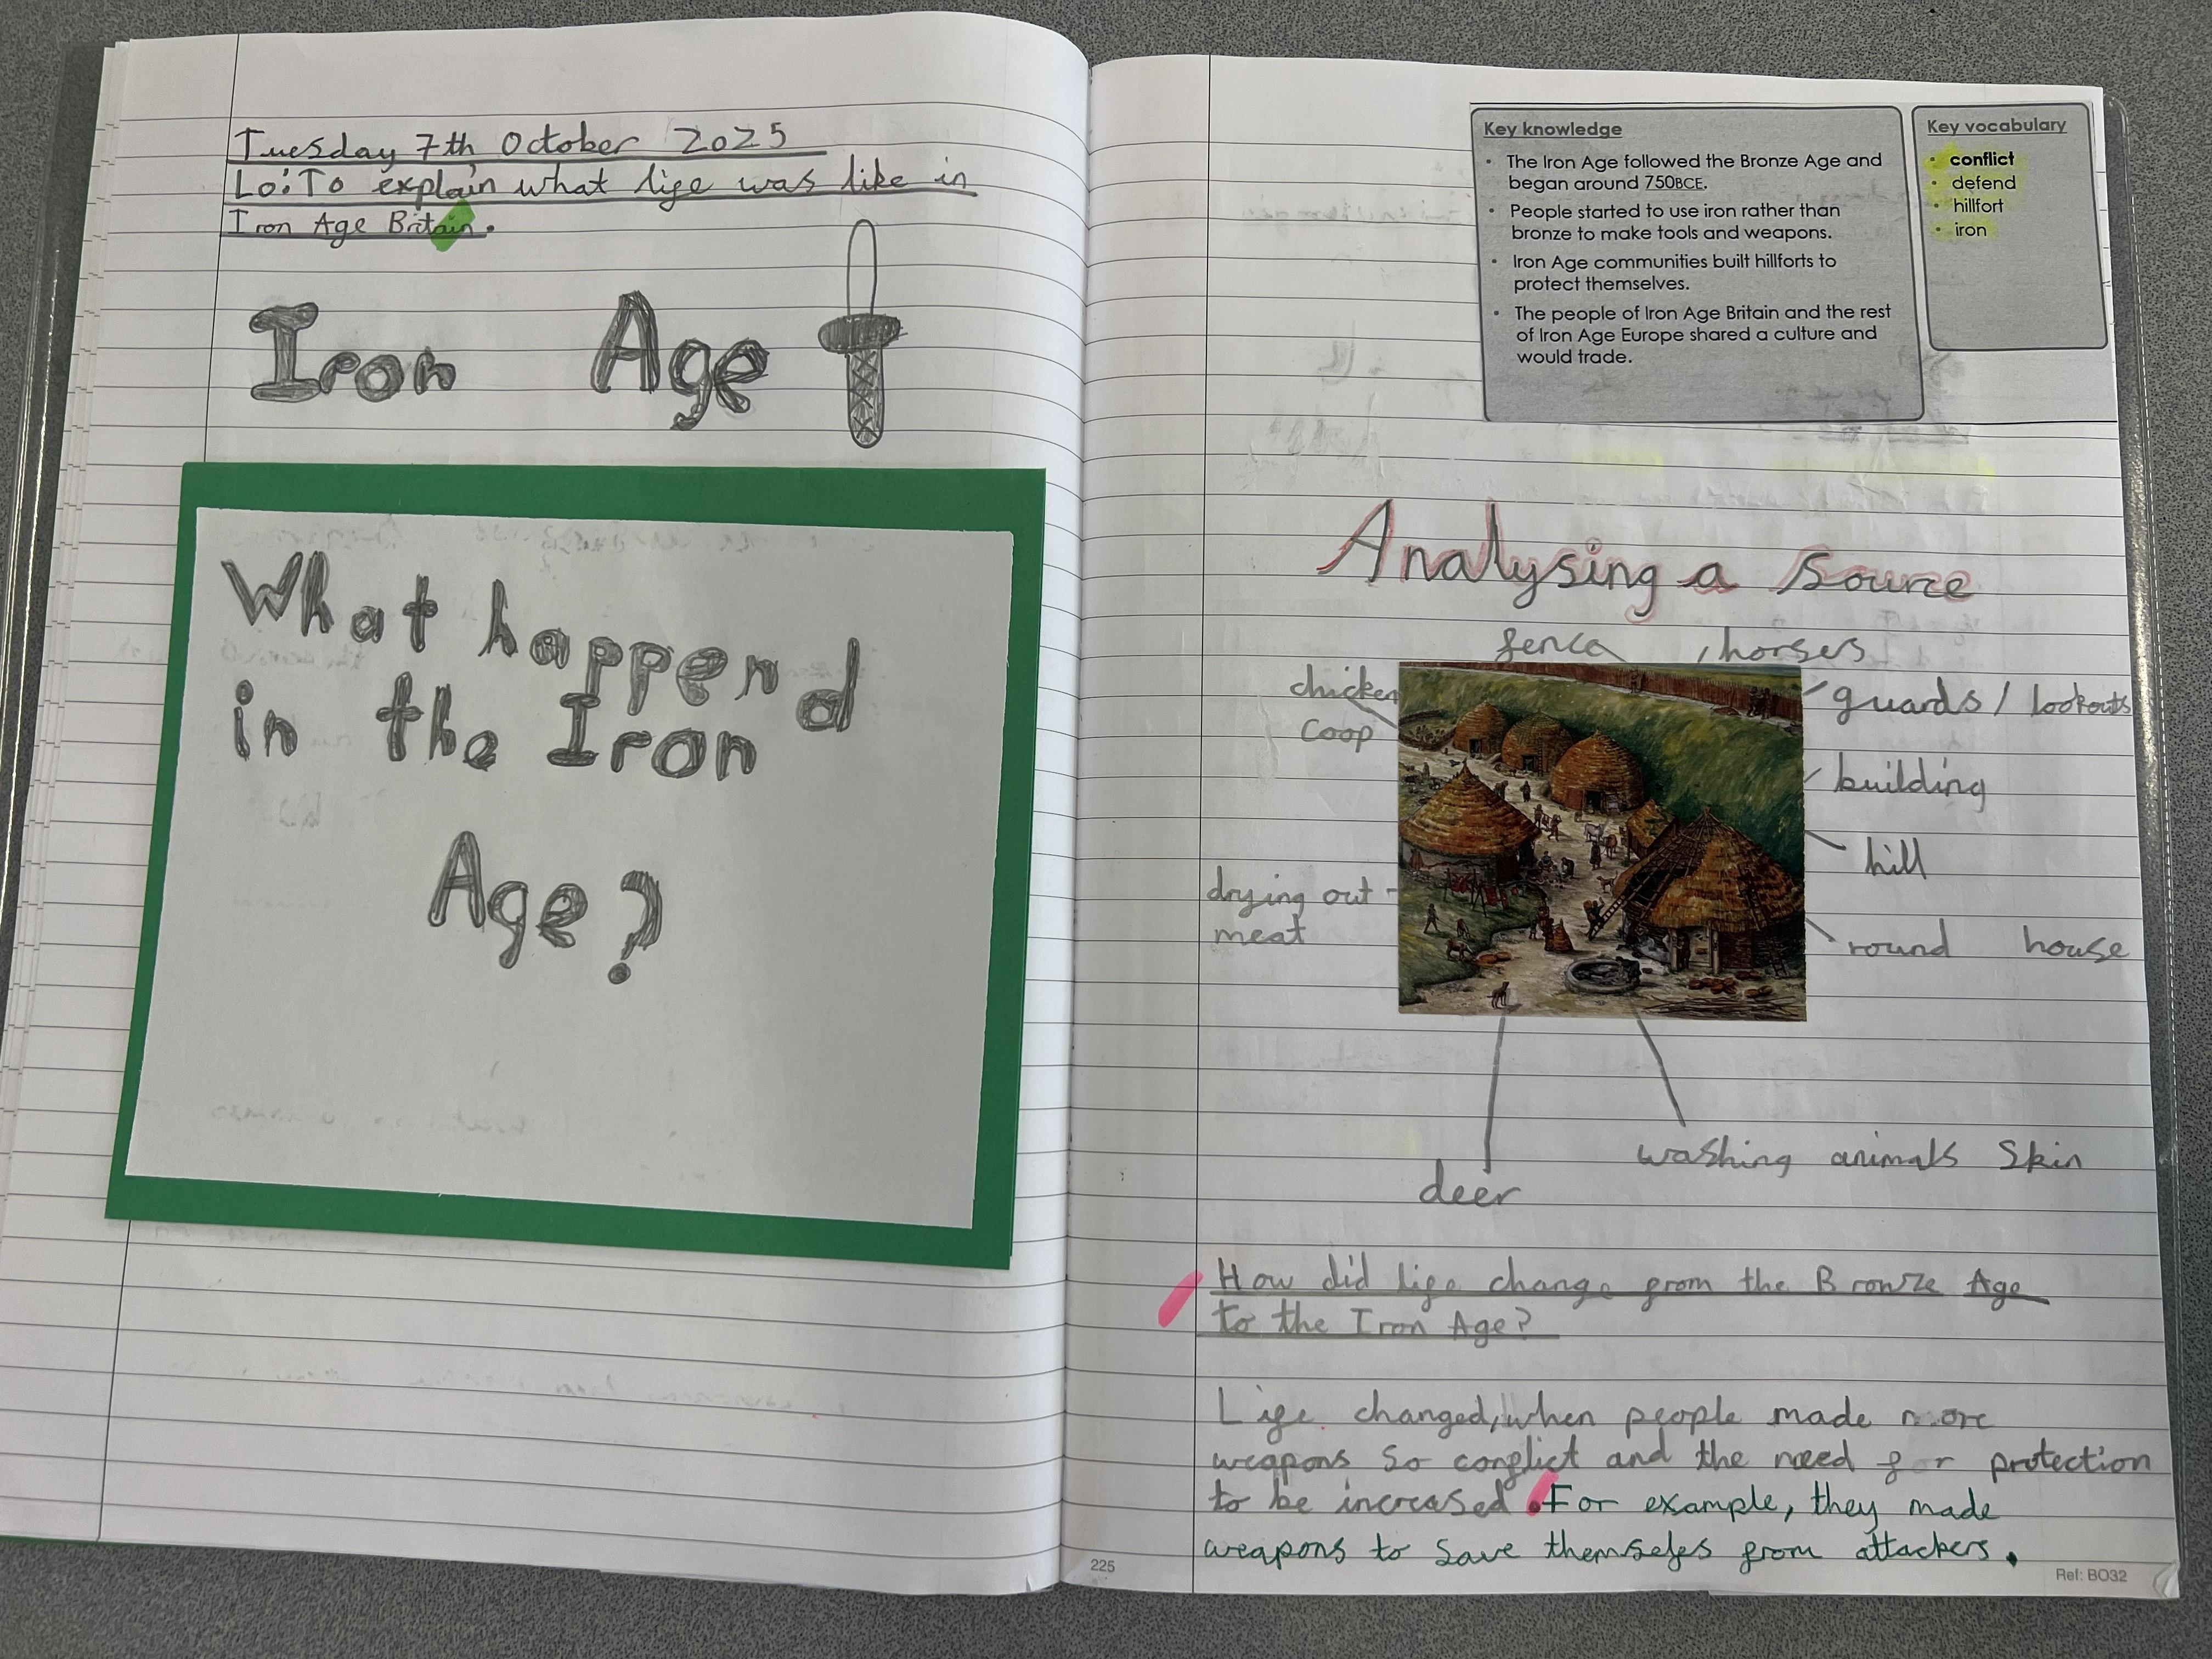 Tuesday 7th October 2025
Lo: To explain what life was like in
Iron Age Britain.
Iron Age
What happend
in the Iron
Age?
Key knowledge
• The Iron Age followed the Bronze Age and
began around 750BCE.
• People started to use iron rather than
bronze to make tools and weapons.
• Iron Age communities built hillforts to
protect themselves.
• The people of Iron Age Britain and the rest
of Iron Age Europe shared a culture and
would trade.
Key vocabulary
• conflict
• defend
• hillfort
• iron
Analysing a source
fence
horses
chicken
coop
guards / lookouts
building
hill
drying out
meat
round house
washing animals skin
deer
How did life change from the Bronze Age
to the Iron Age?
Life changed, when people made more
weapons so conflict and the need for protection
to be increased. For example, they made
weapons to save themselfes from attackers.
225
Ref: BO32